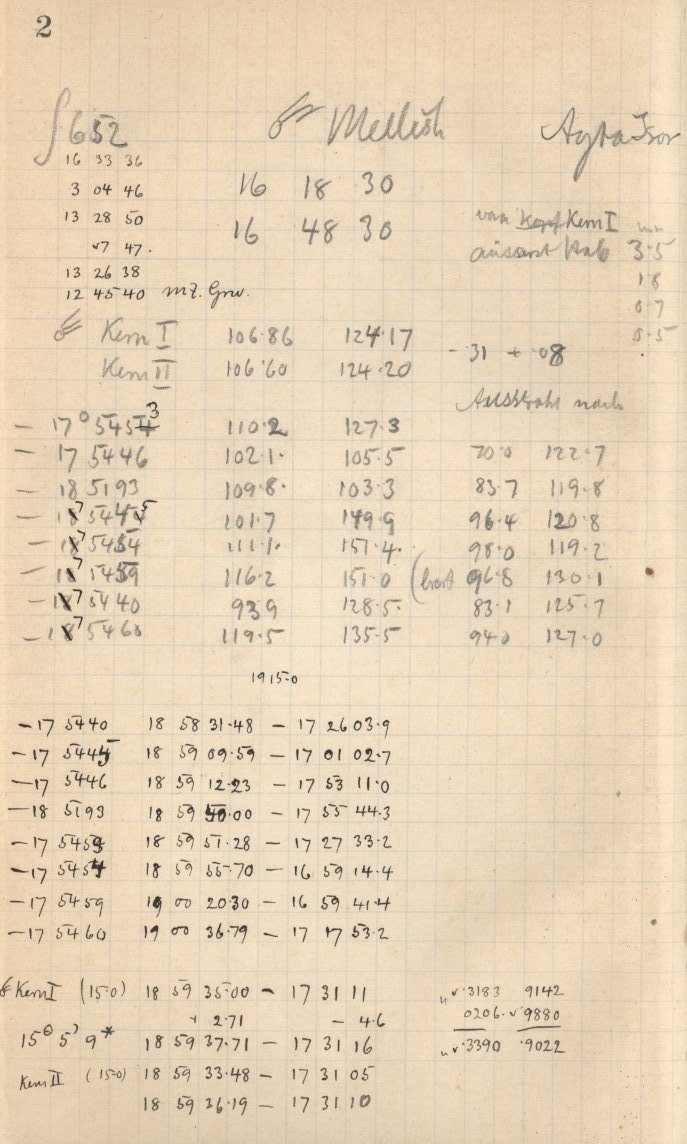 2
∫652 ☄ Mellish
16 33 36
3 04 46 16 18 30
13 28 50 16 48 30 vom Kopf Kern I mm
47. 3.5
13 26 38 1.8
12 45 40 MZ. Grw. 0.7
☄ Kern I 106.86 124.17 0.5
Kern II 106.60 124.20 - .31 + .08
nach
- 17° 5453 110.2 127.3
- 17 5446 102.1. 105.5 70.0 122.7
- 18 5193 109.8. 103.3 83.7 119.8
- 17 5445 101.7 149.9 96.4 120.8
- 17 5454 111.1. 151.4. 98.0 119.2
- 17 5459 116.2 151.0 96.8 130.1
- 17 5440 93.9 128.5. 83.1 125.7
- 17 5460 119.5 135.5 94.0 127.0
1915.0
- 17 5440 18 58 31.48 - 17 26 03.9
- 17 5445 18 59 09.59 - 17 01 02.7
- 17 5446 18 59 12.23 - 17 53 11.0
- 18 5193 18 59 50.00 - 17 55 44.3
- 17 5453 18 59 51.28 - 17 27 33.2
- 17 5454 18 59 55.70 - 16 59 14.4
- 17 5459 19 00 20.30 - 16 59 41.4
- 17 5460 19 00 36.79 - 17 17 53.2
☄ Kern I (15.0) 18 59 35.00 - 17 31 11 .3183 9142
+ 2.71 - 4.6 0206. 9880
15 5 9* 18 59 37.71 - 17 31 16 .3390 .9022
Kern II (15.0) 18 59 33.48 - 17 31 05
18 59 36.19 - 17 31 10